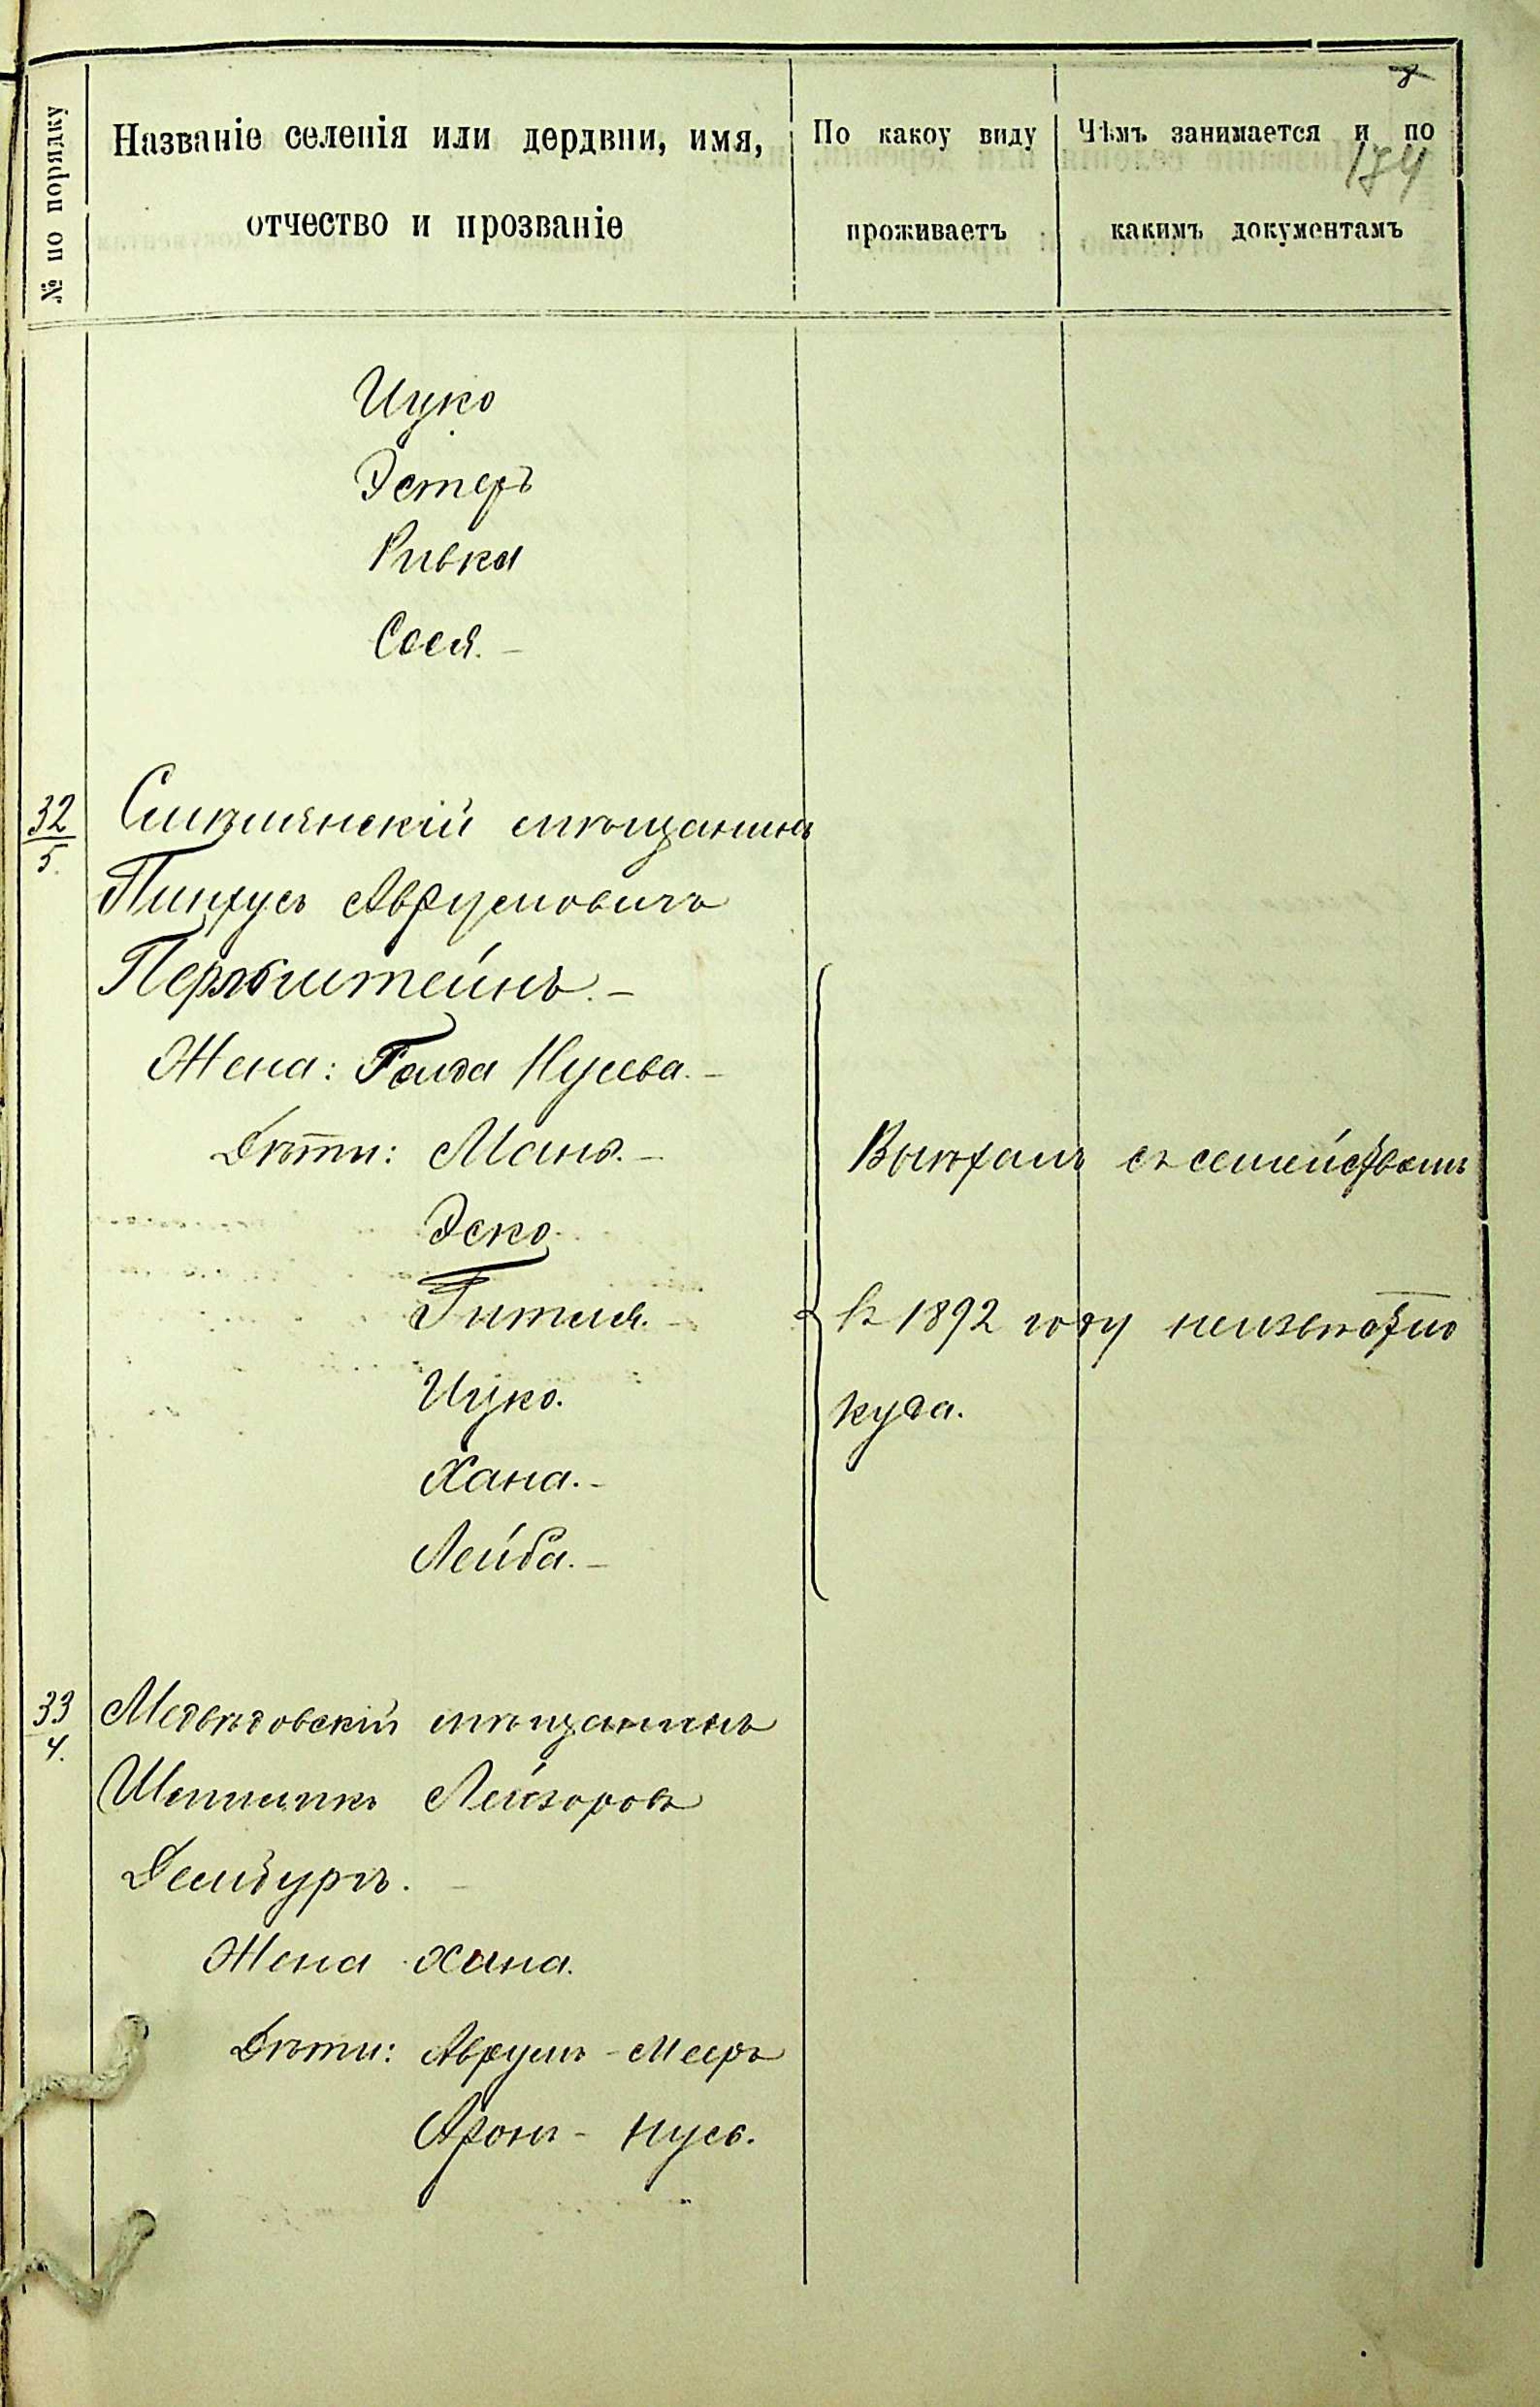 8
174
№ по порядку
Названіе селенія или дердвни, имя,
отчество и прозваніе
По какоу виду
проживаетъ
Чѣмъ занимается и по
какимъ документамъ
Ицко
Эстеръ
Ривка
Сося. -
32
5.
Смѣлянскій мѣщанинъ
Пинхусъ Аврумовичъ
Перльштейнъ. -
Жена: Голда Нусева. -
Дѣти: Маня. -
Эско.
Гитля. -
Ицко.
Хана. -
Лейба. -
Выѣхалъ съ семействомъ
въ 1892 году неизвѣстно
куда.
33
4.
Медвѣдовскій мѣщанинъ
Лейзоровъ
Дембургъ. -
Жена Хана.
Дѣти: Аврумъ - Мееръ
Аронъ - Нусъ.